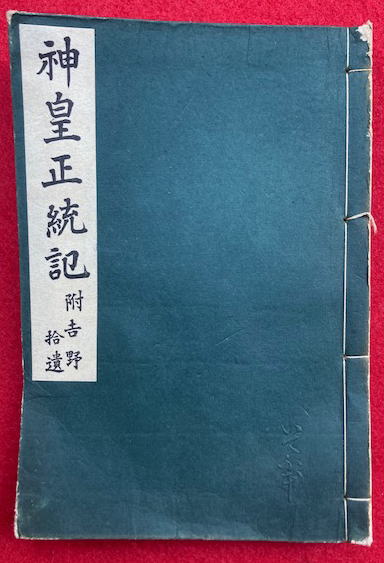 神皇正統記
附吉野
拾遺